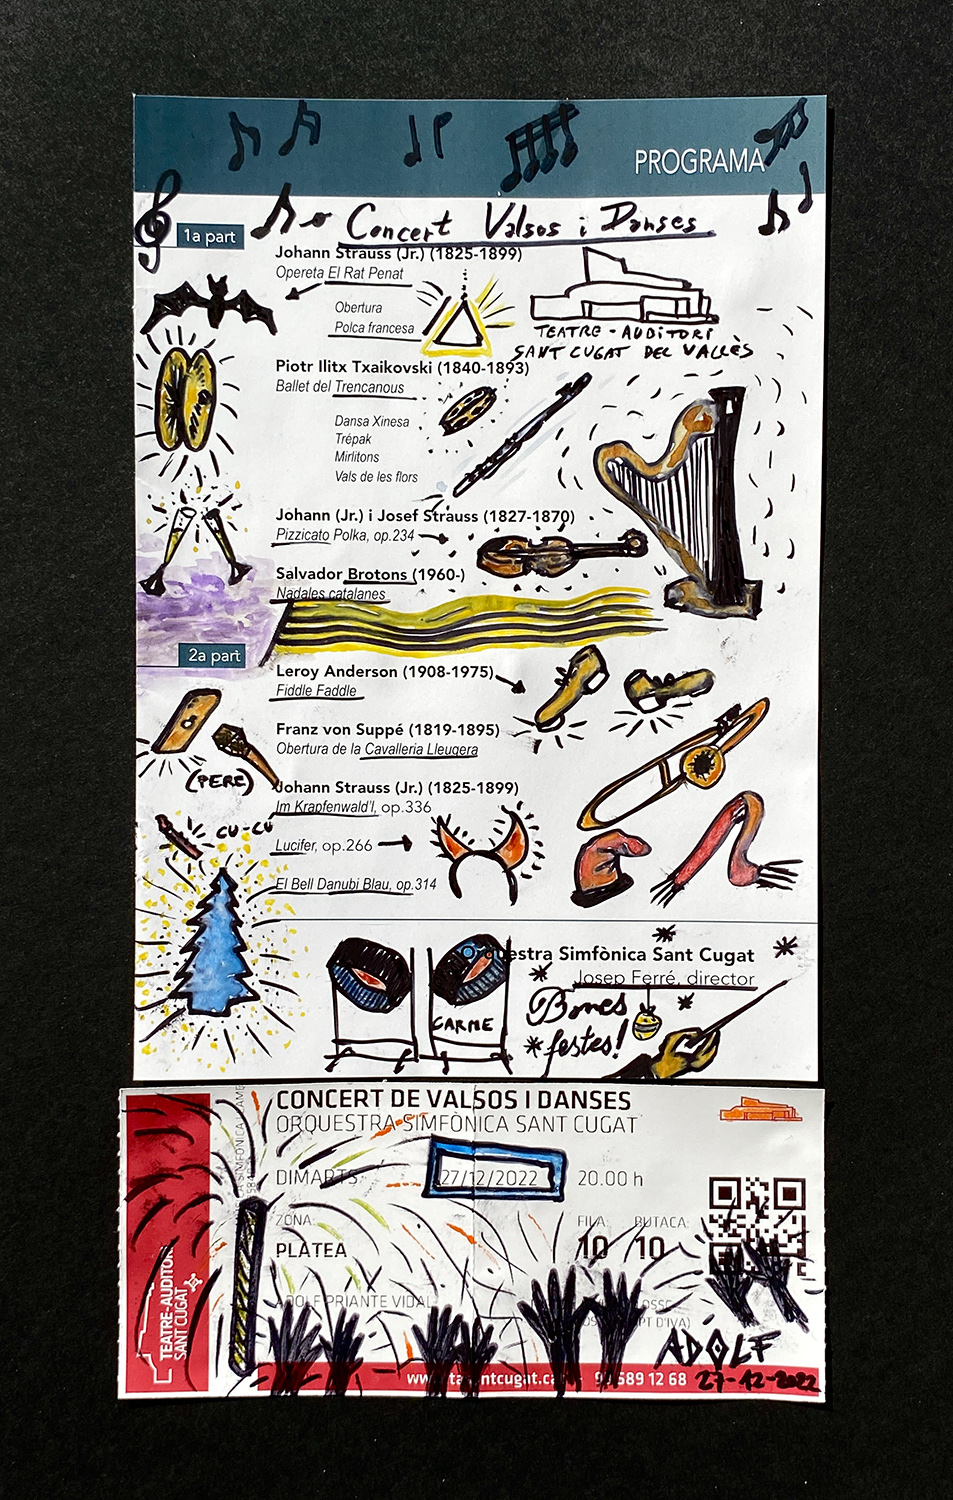 PROGRAMA
Concert Valsos i Danses
1a part
Johann Strauss (Jr.) (1825-1899)
Opereta El Rat Penat
Obertura
Polca francesa
TEATRE-AUDITORI
SANT CUGAT DEL VALLÈS
Piotr Ilitx Txaikovski (1840-1893)
Ballet del Trencanous
Dansa Xinesa
Trépak
Mirlitons
Vals de les flors
Johann (Jr.) i Josef Strauss (1827-1870)
Pizzicato Polka, op.234
Salvador Brotons (1960-)
Nadales catalanes
2a part
Leroy Anderson (1908-1975)
Fiddle Faddle
Franz von Suppé (1819-1895)
Obertura de la Cavalleria Lleugera
(PERE)
Johann Strauss (Jr.) (1825-1899)
Im Krapfenwald'l, op.336
CU-CU
Lucifer, op.266
El Bell Danubi Blau, op.314
Orquestra Simfònica Sant Cugat
Josep Ferré, director
Bones
festes!
CARME
CONCERT DE VALSOS I DANSES
ORQUESTRA SIMFÒNICA SANT CUGAT
DIMARTS 27/12/2022 20.00 h
ZONA: FILA: BUTACA:
PLATEA 10 10
ADOLF PRIANTE VIDAL
TEATRE-AUDITORI
SANT CUGAT
ADOLF
27-12-2022